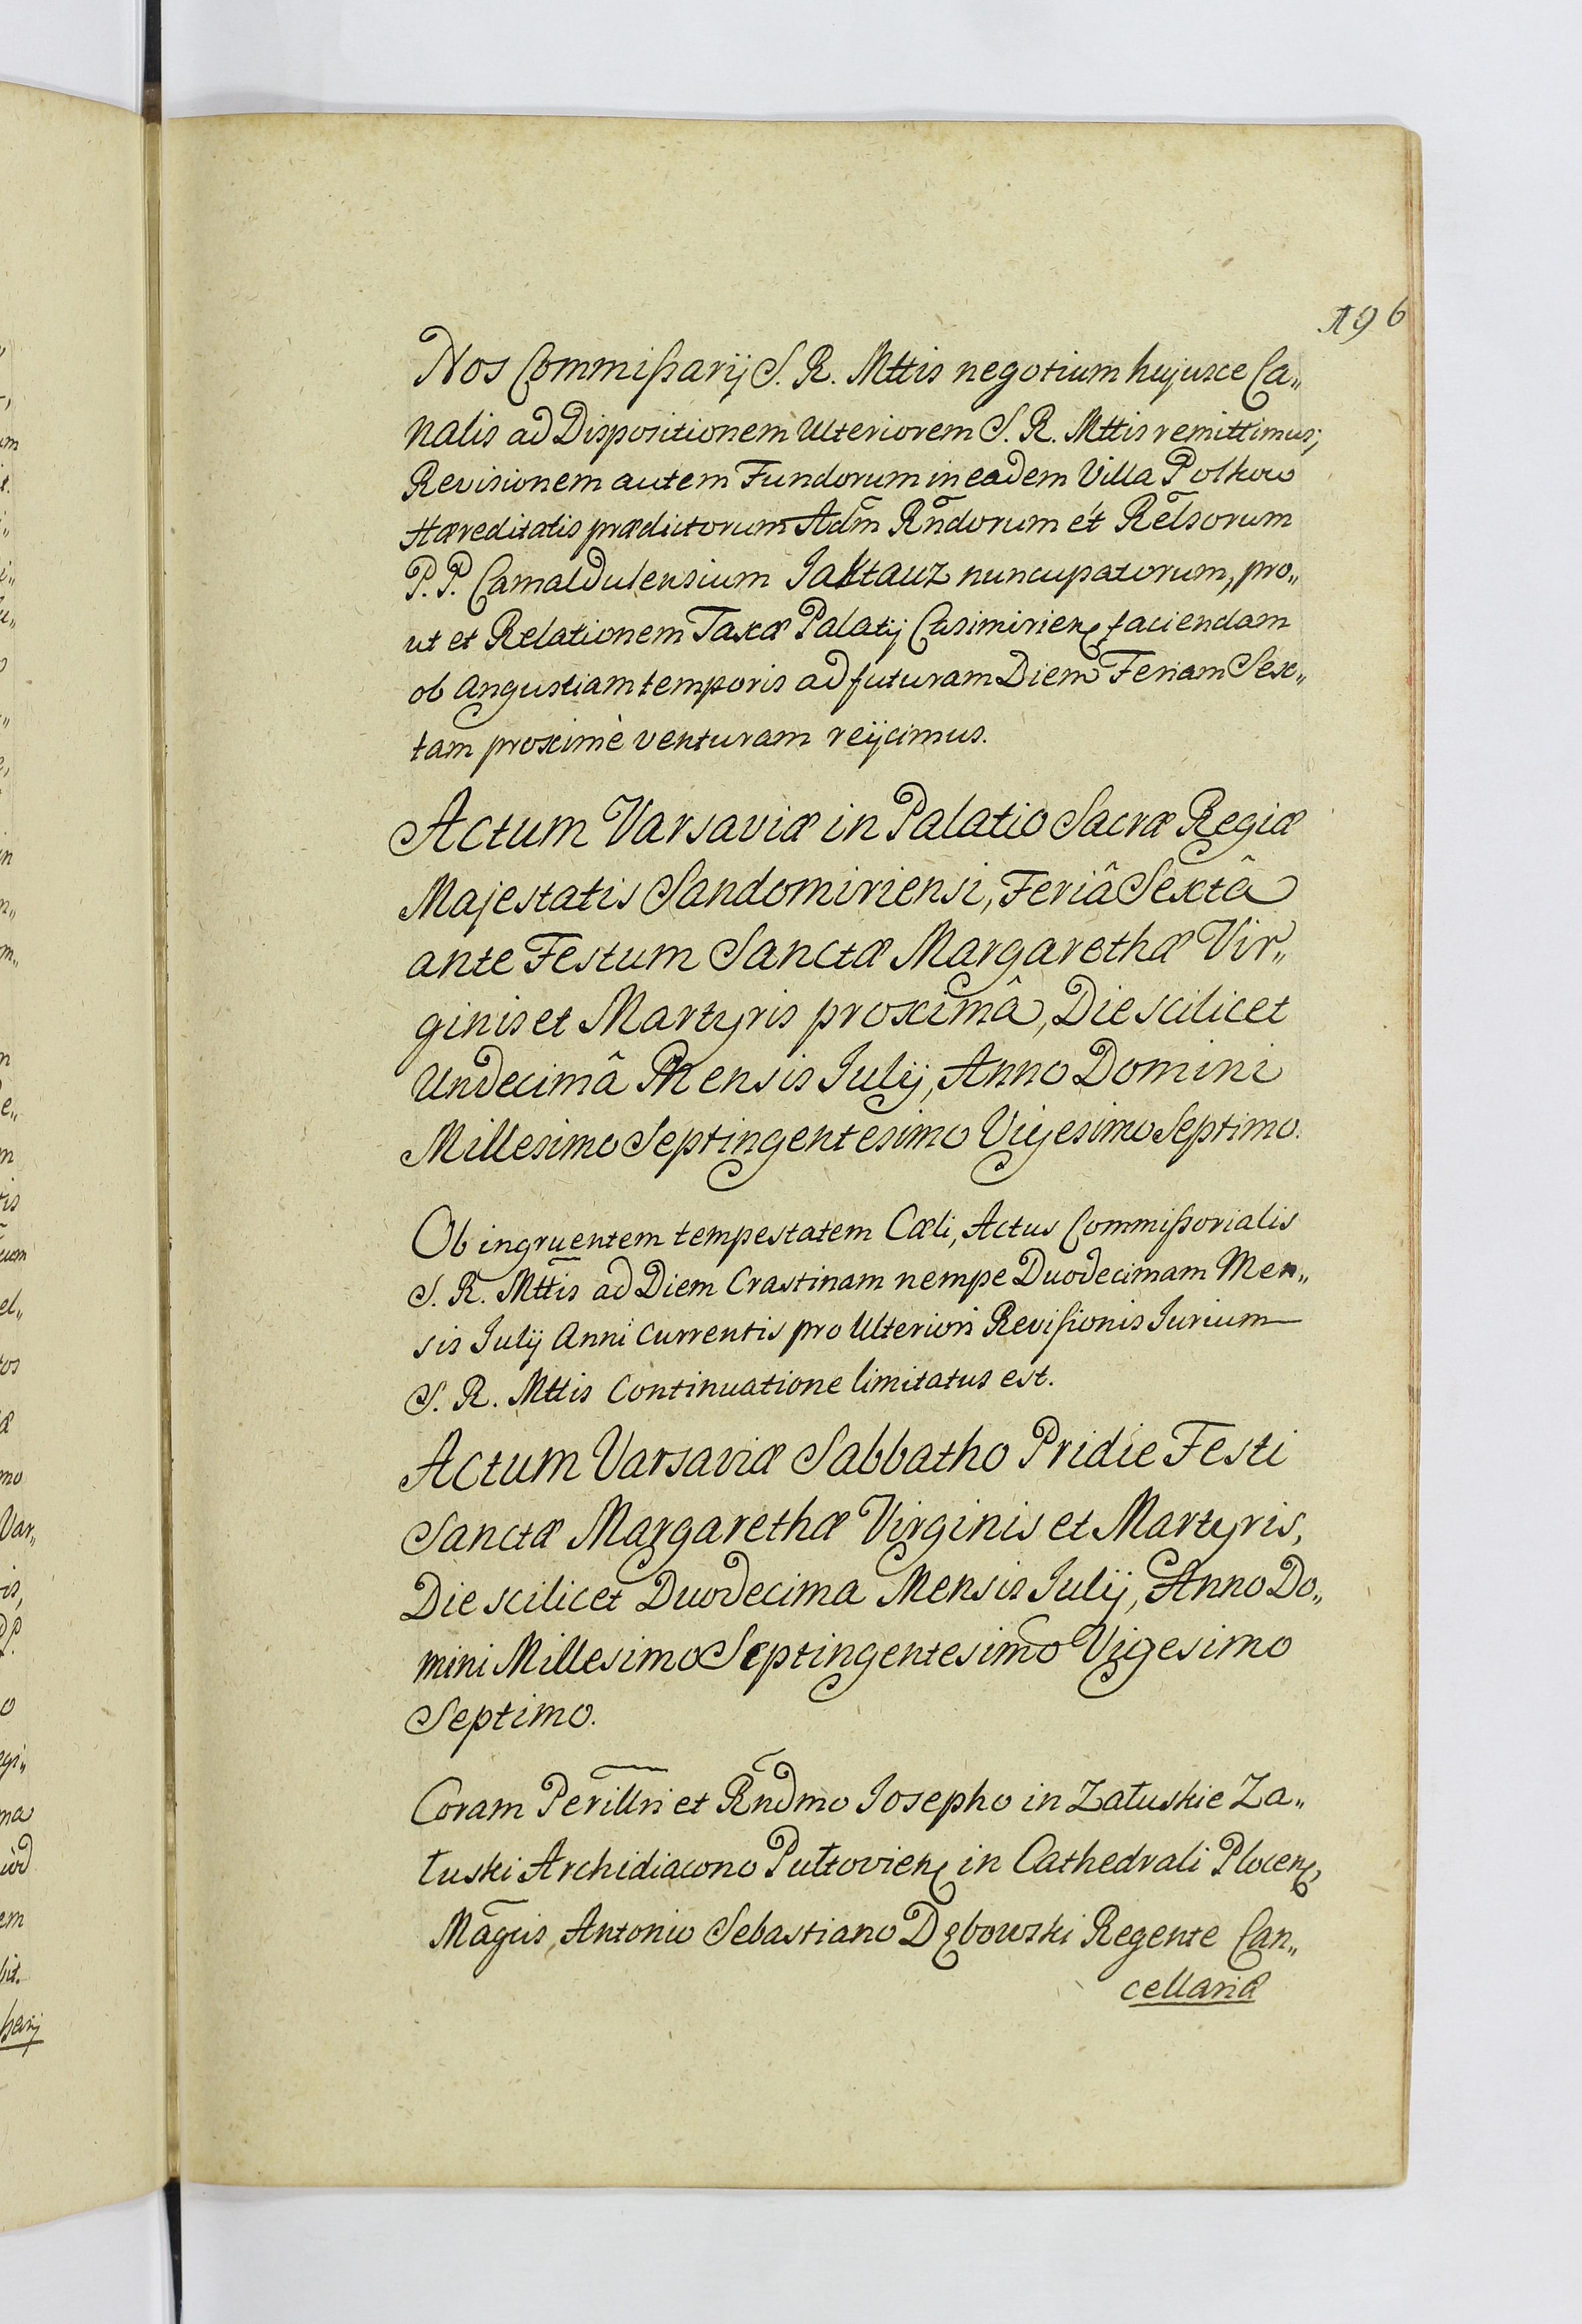 196
Nos Commißarij S. R. Mttis negotium hujusce Ca„
nalis ad Dispositionem Ulteriorem S. R. Mttis remittimus;
Revisionem autem Fundorum in eadem Villa Polkow
Hæreditatis prædictorum Adm̃ Rñdorum et Rel̃sorum
P. P. Camaldulensium Jaktauz nuncupatorum, pro„
ut et Relationem Taxæ Palatij Casimirien faciendam
ob Angustiam temporis ad futuram Diem Feriam Sex„
tam proximè venturam reijcimus.
Actum Varsaviæ in Palatio Sacræ Regiæ
Majestatis Sandomiriensi, Feriâ Sextâ
ante Festum Sanctæ Margarethæ Vir„
ginis et Martyris proximâ, Die scilicet
Undecimâ Mensis Julij, Anno Domini
Millesimo Septingentesimo Vigesimo Septimo.
Ob ingruentem tempestatem Cæli, Actus Commißorialis
S. R. Mttis ad Diem Crastinam nempe Duodecimam Men„
sis Julij Anni Currentis pro Ulteriori Revisionis Jurium
S. R. Mttis Continuatione limitatus est.
Actum Varsaviæ Sabbatho Pridie Festi
Sanctæ Margarethæ Virginis et Martyris,
Die scilicet Duodecima Mensis Julij, Anno Do„
mini Millesimo Septingentesimo Vigesimo
Septimo.
Coram Perillri et Rñdmo Josepho in Załuskie Za„
łuski Archidiacono Pułtovien in Cathedrali Plocen,
Mag̃cis, Antonio Sebastiano Dębowski Regente Can„
cellariæ